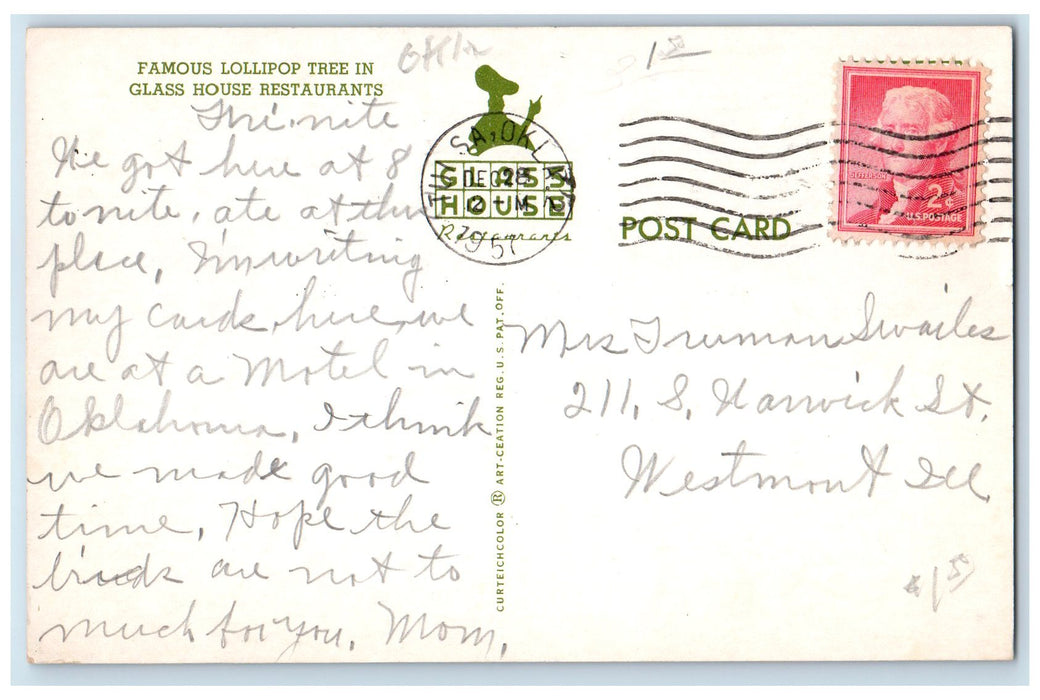 FAMOUS LOLLIPOP TREE IN
GLASS HOUSE RESTAURANTS
Fri. nite
We got here at 8
to nite, ate at this
place, I'm writing
my cards here, we
are at a Motel in
Oklahoma, I think
we made good
time, Hope the
birds are not to
much for you, Mom,
Okla
TULSA, OKLA.
DEC 28
12 - M
1957
GLASS
HOUSE
Restaurants
CURTEICHCOLOR ® ART-CREATION REG. U.S. PAT. OFF.
POST CARD
JEFFERSON
2¢
U.S. POSTAGE
Mrs Truman Swailes
211, S, Warwick St.
Westmont Ill